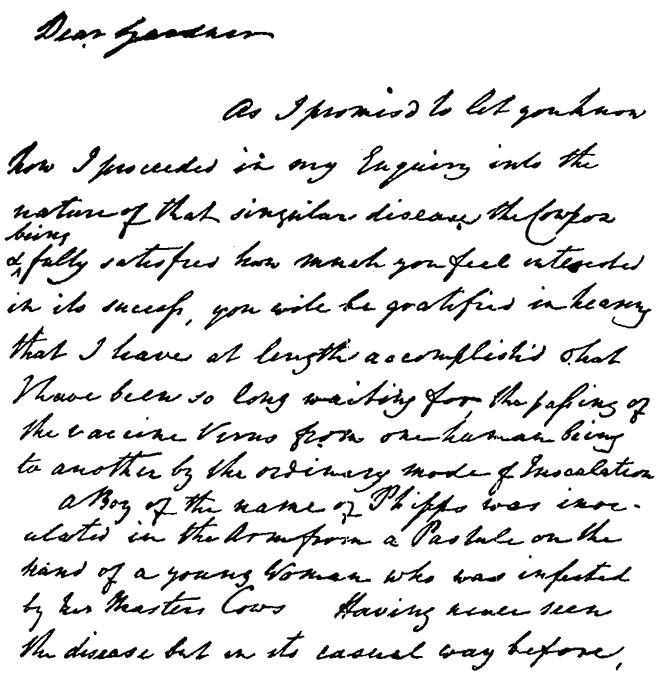 Dear Gardner
As I promis'd to let you know
how I proceeded in my Enquiry into the
nature of that singular disease the Cowpox
being
& fully satisfied how much you feel interested
in its success, you will be gratified in hearing
that I have at length accomplish'd what
I have been so long waiting for, the passing of
the vaccine Virus from one human being
to another by the ordinary mode of Inoculation
A Boy of the name of Phipps was inoc-
ulated in the Arm from a Pustule on the
hand of a young Woman who was infected
by her Masters Cows Having never seen
the disease but in its casual way before,